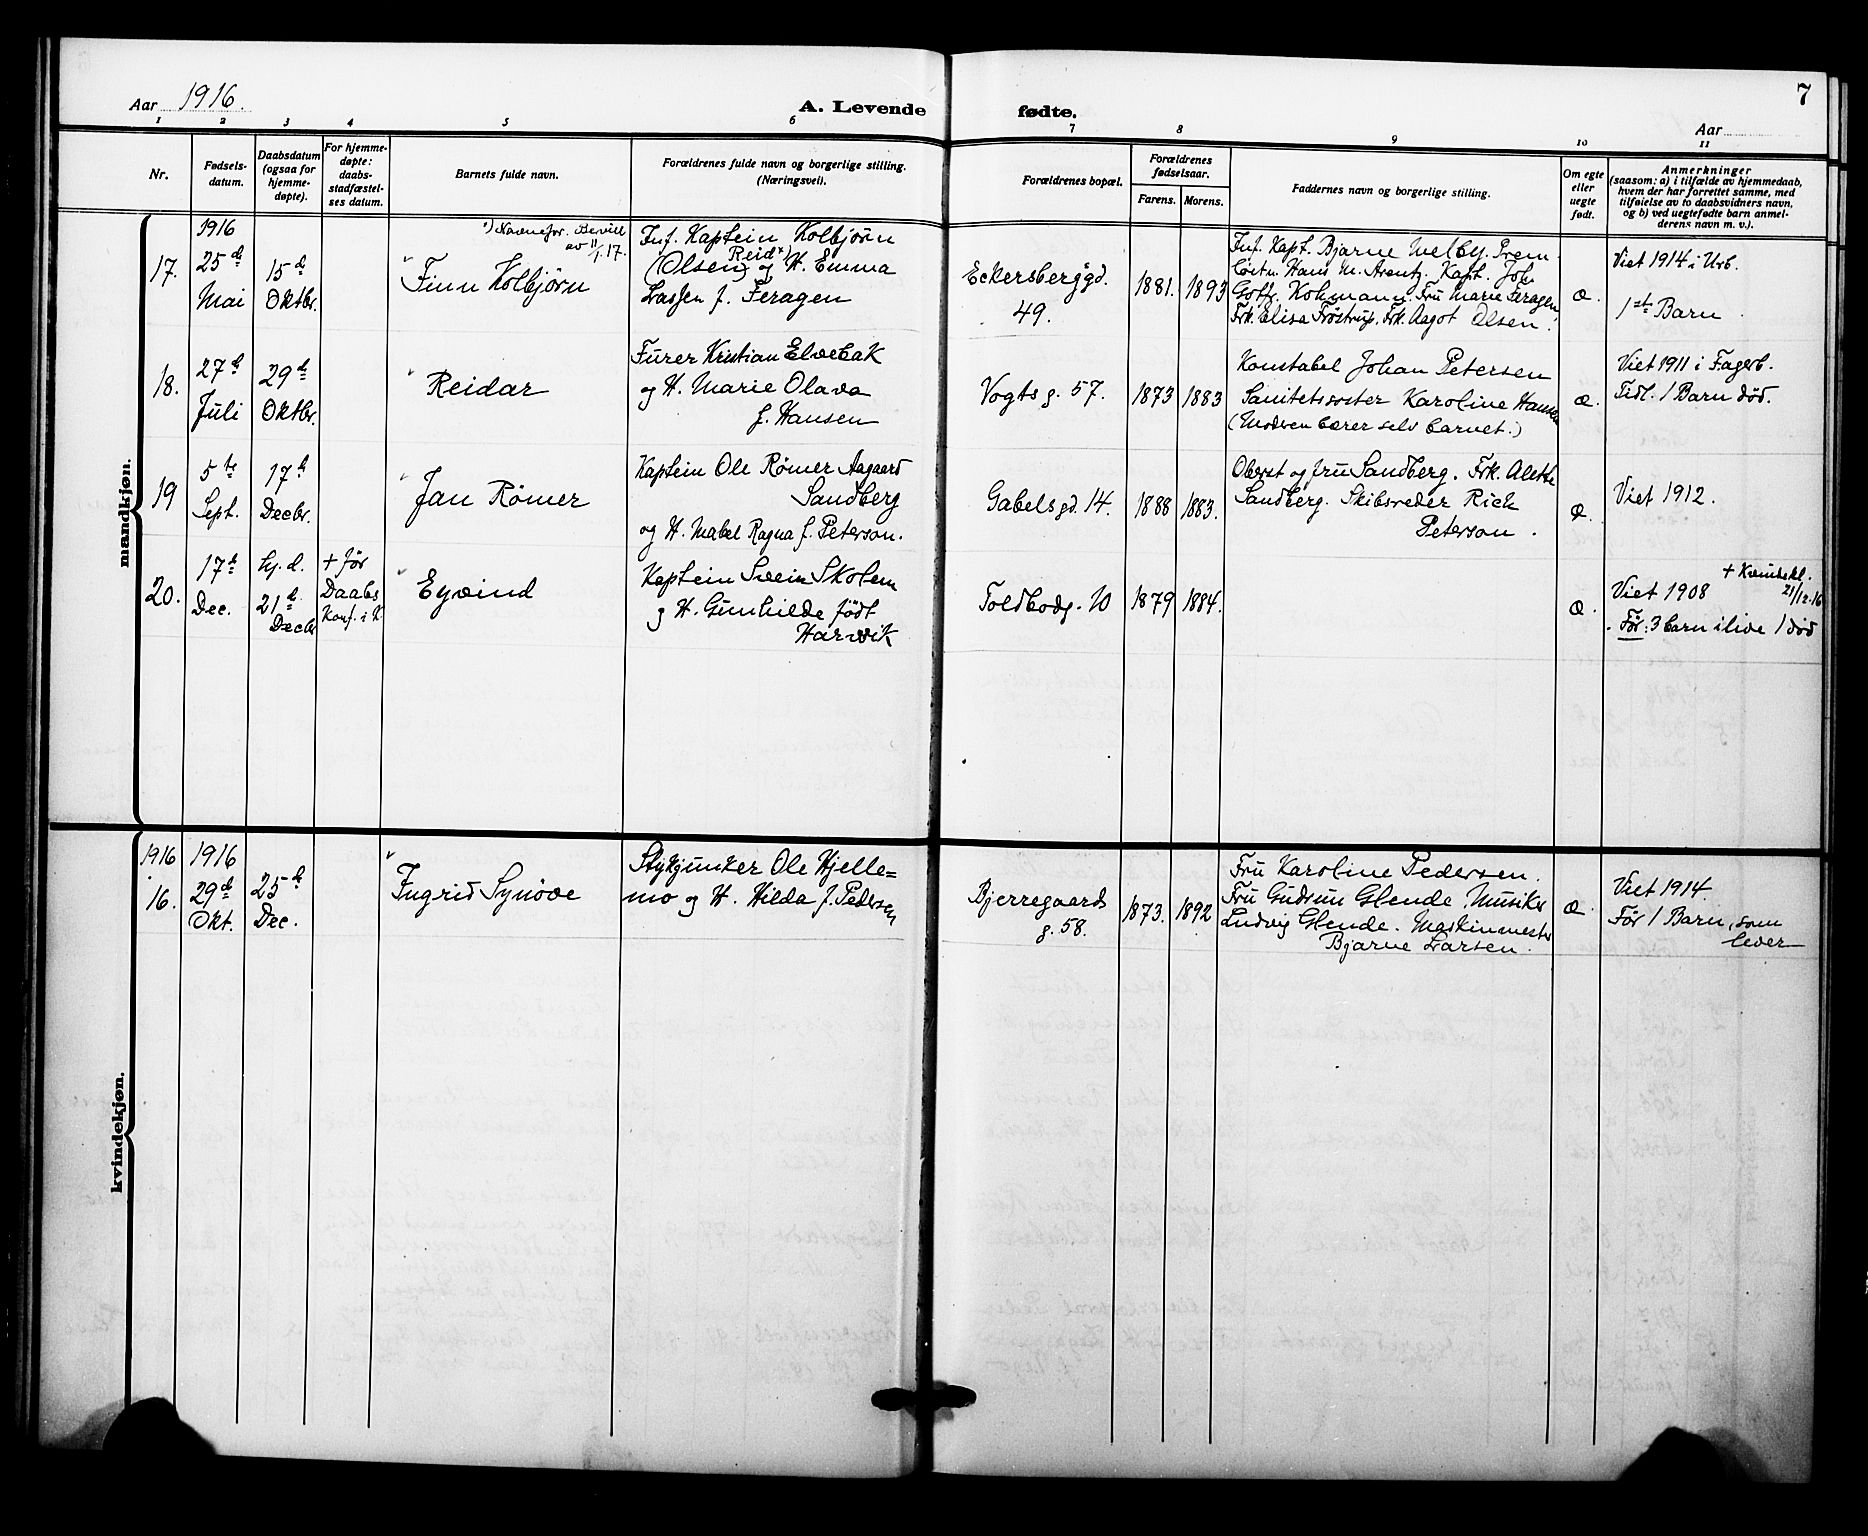 7
Aar 1916.
A. Levende fødte.
Aar
1 2 3 4 5 6 7 8 9 10 11
Nr.
Fødsels-
datum.
Daabsdatum
(ogsaa for
hjemme-
døpte).
For hjemme-
døpte:
daabs-
stadfæstel-
ses datum.
Barnets fulde navn.
Forældrenes fulde navn og borgerlige stilling.
(Næringsvei).
Forældrenes bopæl.
Forældrenes
fødselsaar.
Farens. Morens.
Faddernes navn og borgerlige stilling.
Om egte
eller
uegte
født.
Anmerkninger
(saasom: a) i tilfælde av hjemmedaab,
hvem der har forrettet samme, med
tilføielse av to daabsvidners navn,
og b) ved uegtefødte barn anmel-
derens navn m. v.).
mandkjøn.
17.
1916
25de
Mai
15de
Oktbr.
x) Navnefor. Bevill
av 11/1.17.
Finn Kolbjørn
Inf. Kaptein Kolbjørn
Reid x)
(Olsen) og H. Emma
Lassen f. Feragen
Eckersbergsgd.
49.
1881.
1893
Inf. Kapt. Bjarne Welby. Prem.
Løitn. Hans M. Arentz. Kapt. Joh.
Gottf. Kohmann. Fru Marie Feragen
Frk. Elisa Frøstrup. Frk. Aagot Olsen.
æ.
Viet 1914 i Urb.
1ste Barn
18.
27de
Juli
29de
Oktbr.
Reidar
Furer Kristian Elvebak
og H. Marie Olava
f. Hansen
Vogts g. 57.
1873
1883
Konstabel Johan Petersen
Sanitetssøster Karoline Hansen
(Moderen bærer selv barnet.)
æ.
Viet 1911 i Fagerb.
Tidl. 1 Barn død.
19
5te
Sept.
17de
Decbr.
Jan Rømer
Kaptein Ole Rømer Aagaard
Sandberg
og H. Mabel Ragna f. Peterson.
Gabelsgd. 14.
1888
1883.
Oberst og fru Sandberg. Frk. Alethe
Sandberg. Skibsreder Rich
Peterson.
æ.
Viet 1912.
20.
17de
Dec.
hj. d.
21de
Decbr
+ før
Daabs
Konf. i K.
Eyvind
Kaptein Svein Skolem
og H. Gunhilde født
Harvik
Toldbodg. 10
1879
1884.
æ.
+ Kvindekl.
21/12.16
Viet 1908
. Før: 3 barn ilive 1 død
kvindekjøn.
1916
16.
1916
29de
Okt.
25de
Dec.
Ingrid Synöve
Stykjunker Ole Hjelle=
mo og H. Hilda f. Pedersen
Bjerregaards
g. 58.
1873.
1892
Fru Karoline Pedersen.
Fru Gudrun Glende. Musiker
Ludvig Glende. Maskinmester
Bjarne Larsen.
æ.
Viet 1914.
Før 1 Barn, som
lever